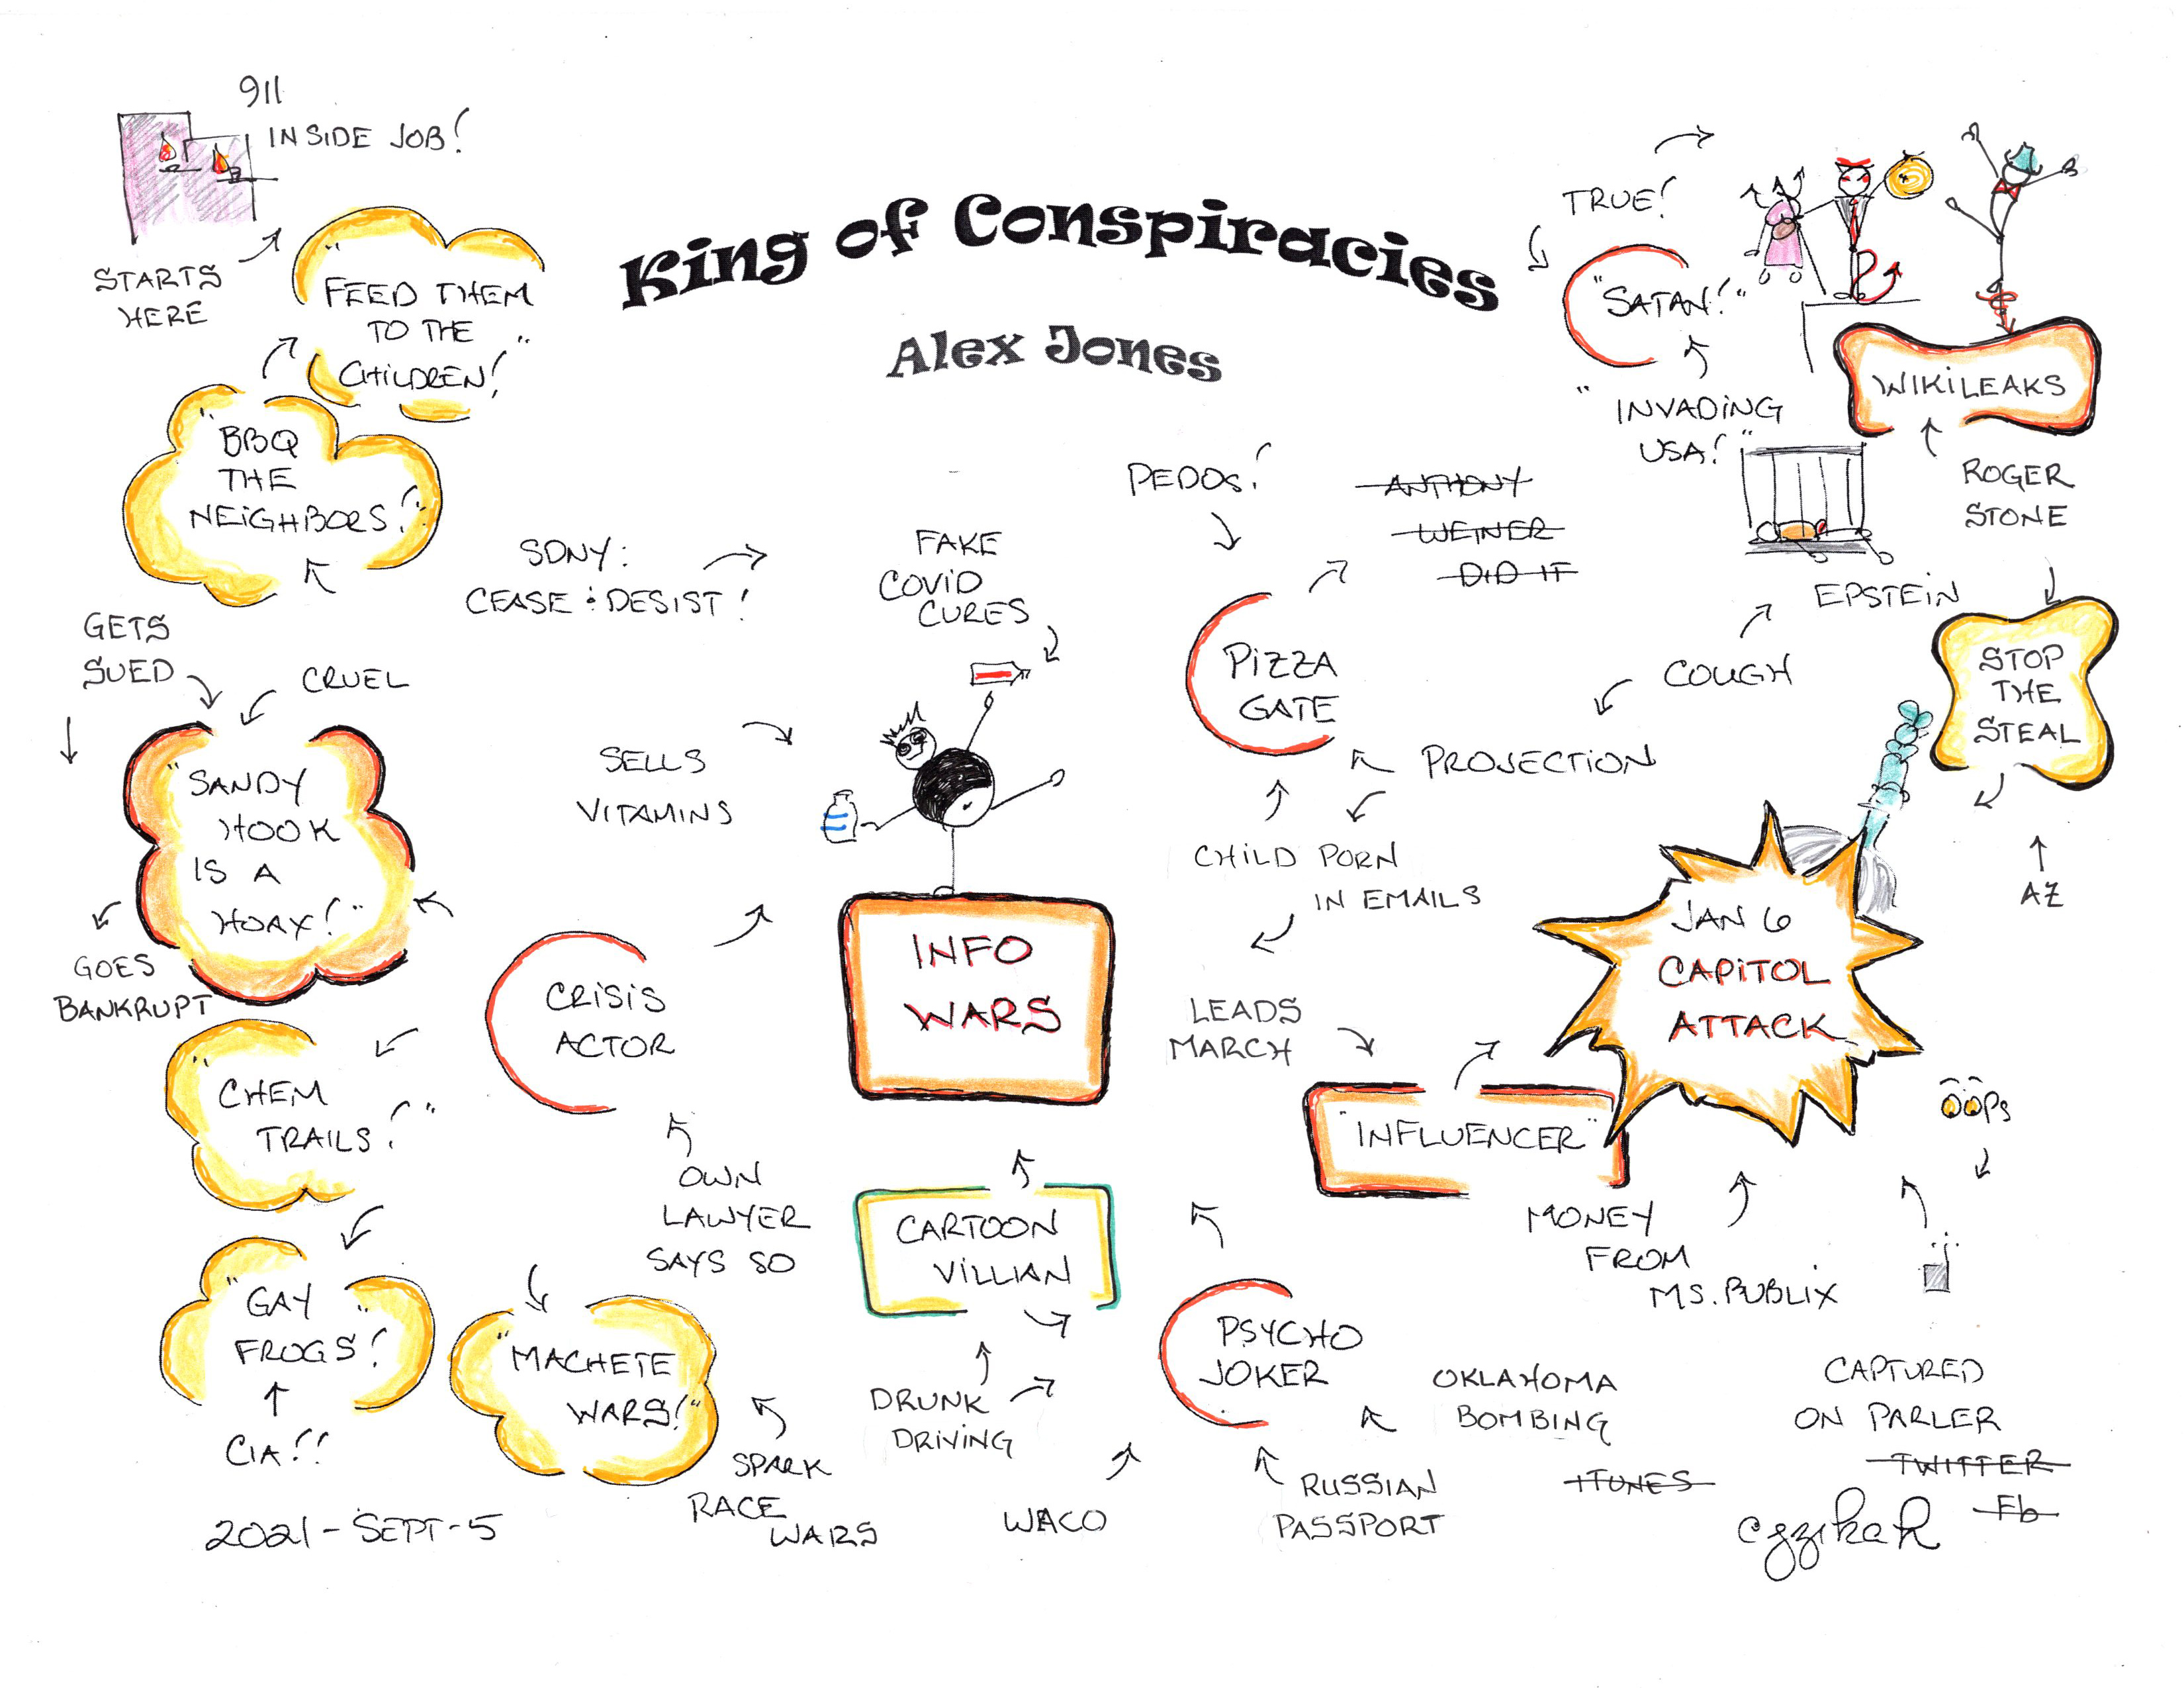 King of Conspiracies
Alex Jones
911
INSIDE JOB!
STARTS
HERE
"FEED THEM
TO THE
CHILDREN!"
"BBQ
THE
NEIGHBORS!"
GETS
SUED
CRUEL
"SANDY
HOOK
IS A
HOAX!"
GOES
BANKRUPT
"CHEM
TRAILS!"
"GAY
FROGS!"
CIA!!
2021-SEPT-5
"MACHETE
WARS!"
SPARK
RACE
WARS
CRISIS
ACTOR
OWN
LAWYER
SAYS SO
SONY:
CEASE & DESIST!
SELLS
VITAMINS
FAKE
COVID
CURES
INFO
WARS
CARTOON
VILLIAN
DRUNK
DRIVING
WACO
PSYCHO
JOKER
RUSSIAN
PASSPORT
OKLAHOMA
BOMBING
ITUNES
PEDOS!
PIZZA
GATE
ANTHONY
WEINER
DID IT
PROJECTION
COUGH
EPSTEIN
CHILD PORN
IN EMAILS
LEADS
MARCH
"INFLUENCER"
MONEY
FROM
MS. PUBLIX
JAN 6
CAPITOL
ATTACK
OOPS
CAPTURED
ON PARLER
TWITTER
Fb
TRUE!
"SATAN!"
"INVADING
USA!"
WIKILEAKS
ROGER
STONE
STOP
THE
STEAL
AZ